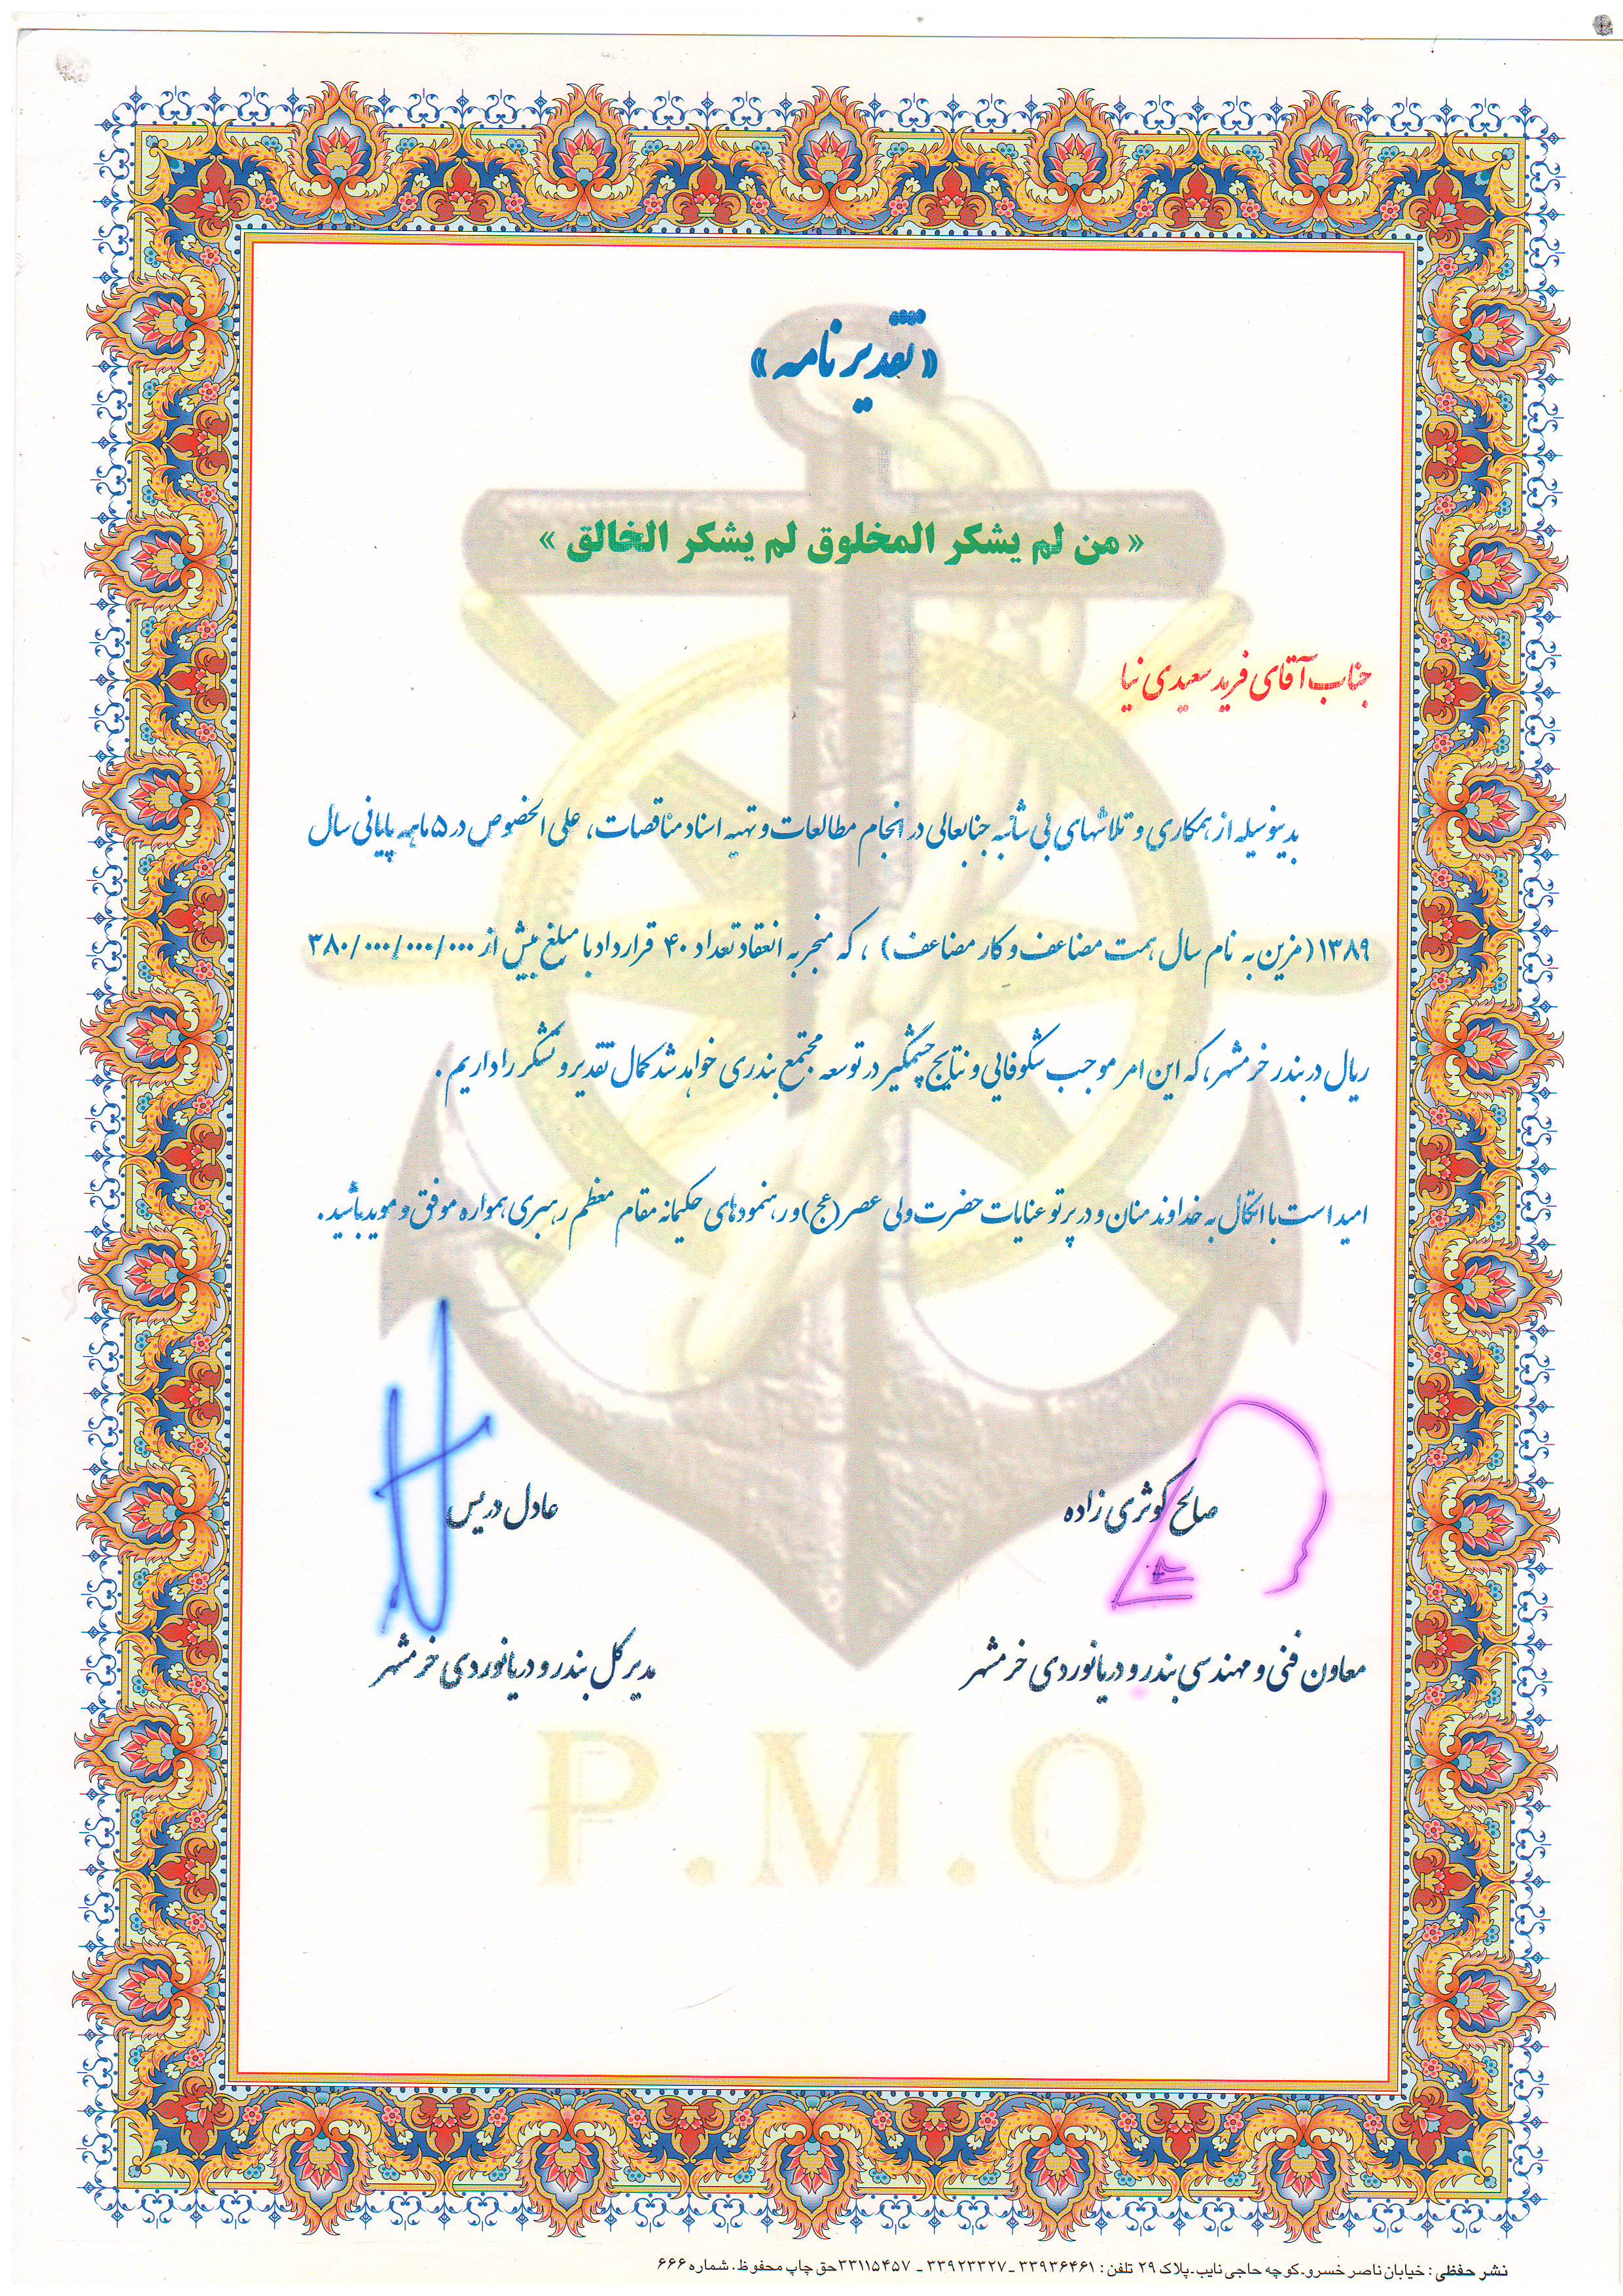 « تقدیر نامه »
« من لم یشکر المخلوق لم یشکر الخالق »
جناب آقای فرید سعیدی نیا
بدینوسیله از همکاری و تلاشهای بی شائبه جنابعالی در انجام مطالعات و تهیه اسناد مناقصات، علی الخصوص در ۵ ماهه پایانی سال
۱۳۸۹ (مزین به نام سال همت مضاعف و کار مضاعف) ، که منجر به انعقاد تعداد ۴۰ قرارداد با مبلغ بیش از ۳۸۰/۰۰۰/۰۰۰/۰۰۰
ریال در بندر خرمشهر، که این امر موجب شکوفائی و نتایج چشمگیر در توسعه مجتمع بندری خواهد شد کمال تقدیر و تشکر را داریم .
امید است با اتکال به خداوند منان و در پرتو عنایات حضرت ولی عصر (عج) و رهنمودهای حکیمانه مقام معظم رهبری همواره موفق و موید باشید .
صالح کوثری زاده
معاون فنی و مهندسی بندر و دریانوردی خرمشهر
عادل دریس
مدیر کل بندر و دریانوردی خرمشهر
P.M.O
نشر حفظی : خیابان ناصر خسرو.کوچه حاجی نایب.پلاک ۲۹ تلفن : ۳۳۹۳۶۴۶۱ ـ ۳۳۹۲۳۳۲۷ ـ ۳۳۱۱۵۴۵۷ حق چاپ محفوظ . شماره ۶۶۶